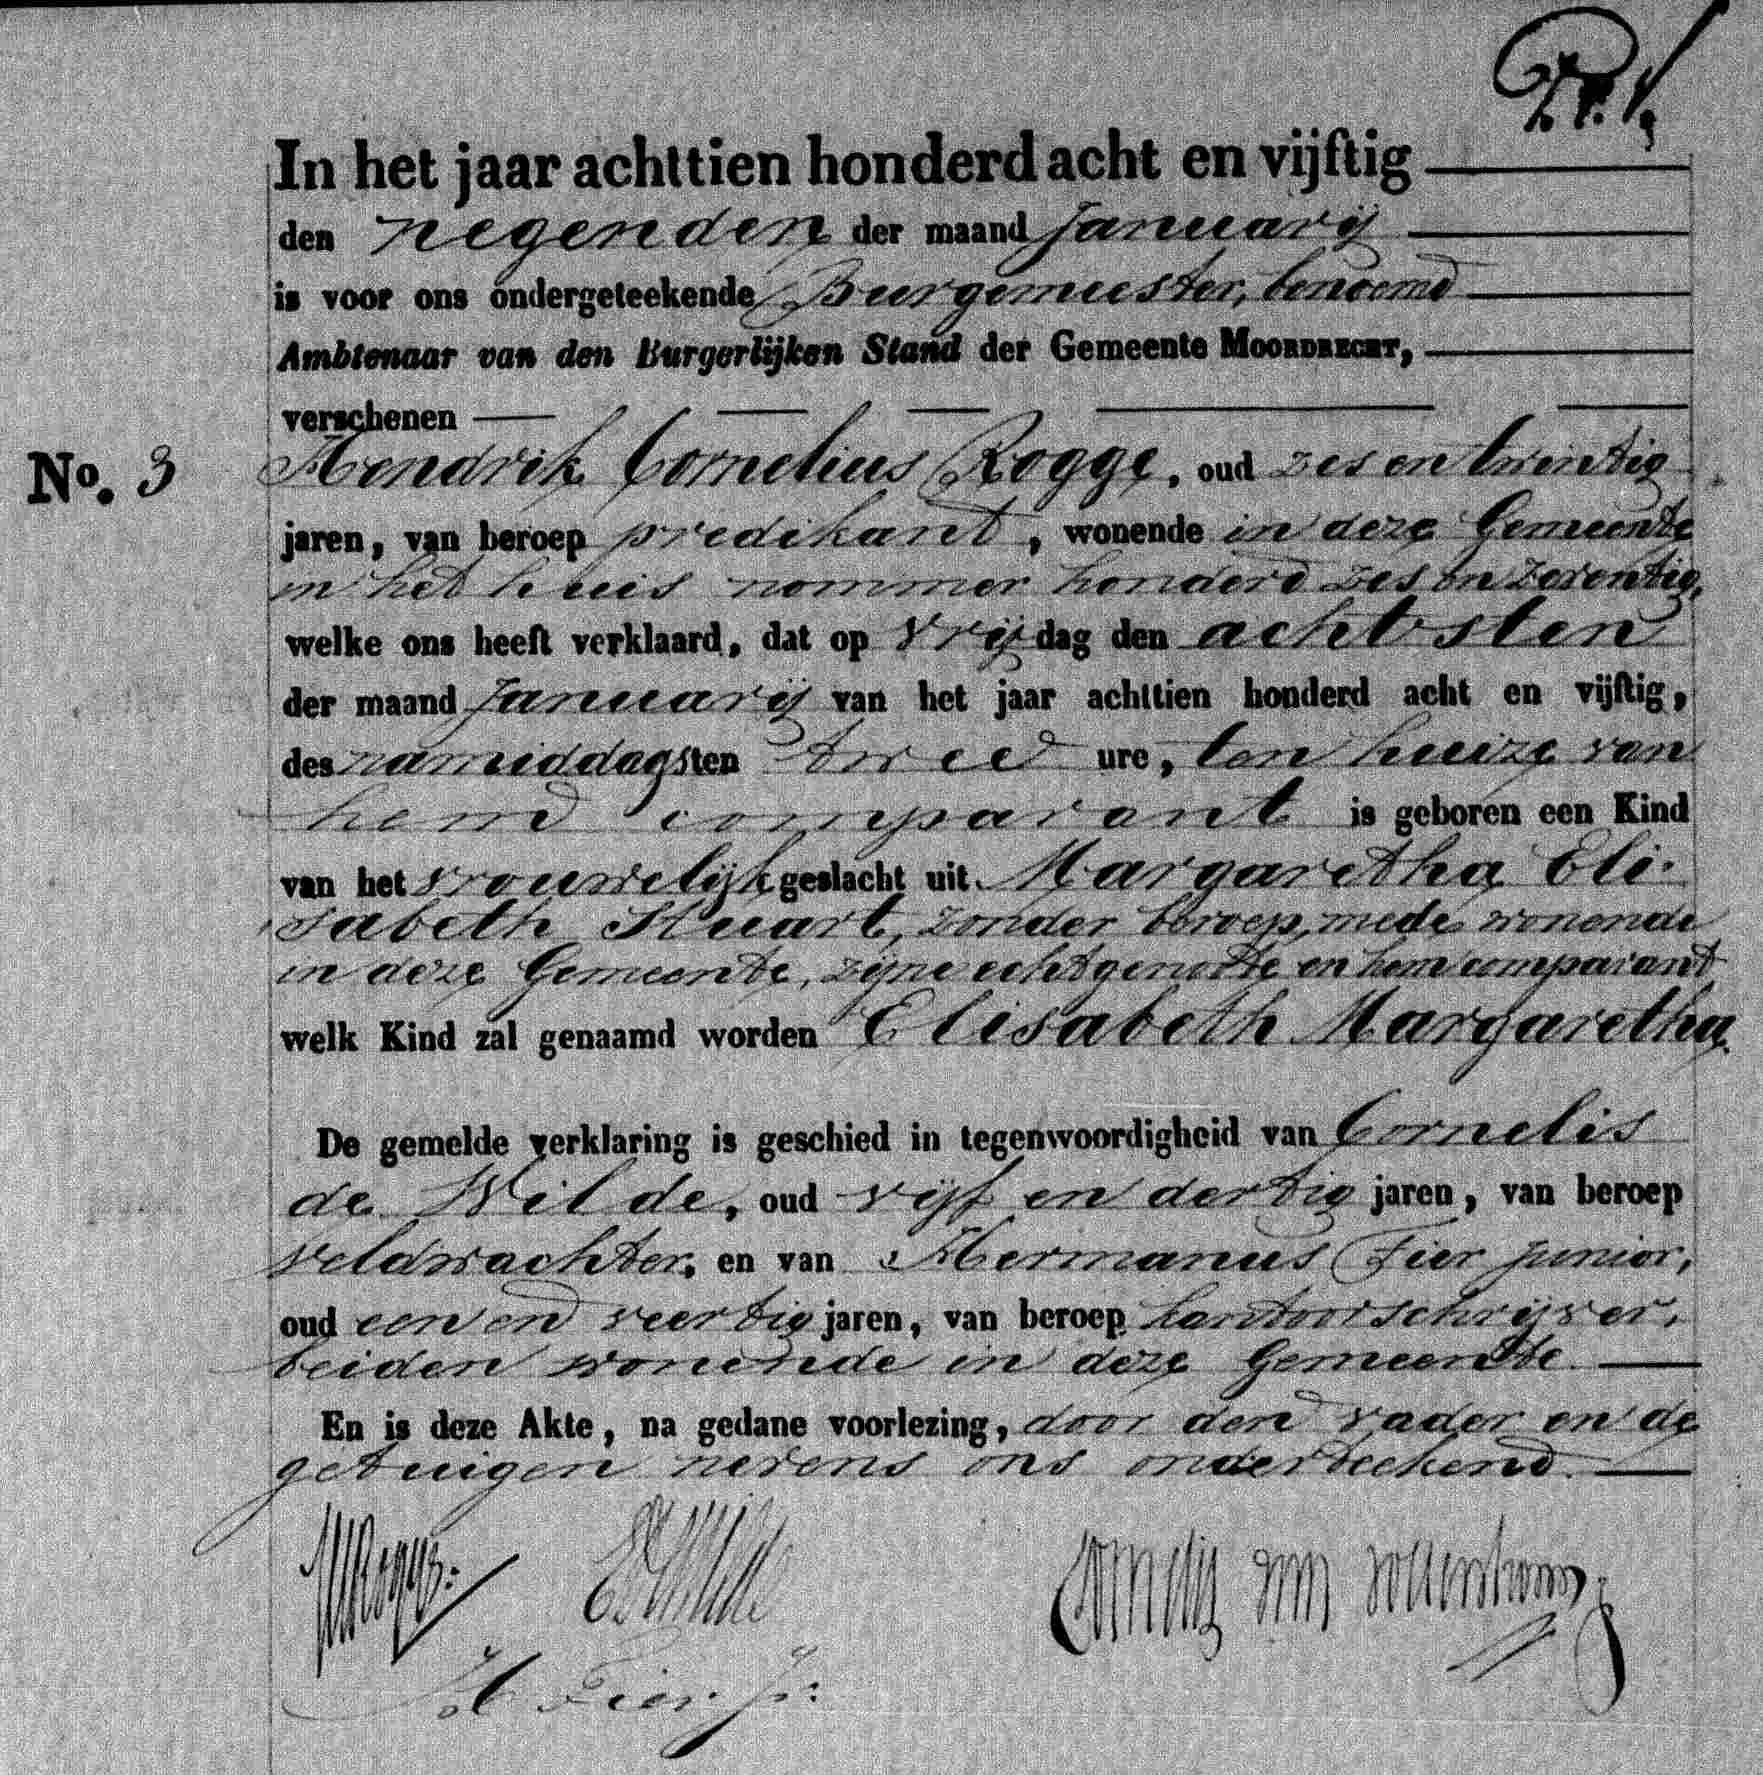 In het jaar achttien honderd acht en vijftig
den negenden der maand Januarij
is voor ons ondergeteekende Burgemeester, benoemd
Ambtenaar van den Burgerlijken Stand der Gemeente MOORDRECHT,
verschenen
No. 3 Hendrik Cornelius Rogge, oud zes en twintig
jaren, van beroep predikant, wonende in deze Gemeente
in het huis nommer honderd zes en zeventig,
welke ons heeft verklaard, dat op vrijdag den achtsten
der maand Januarij van het jaar achttien honderd acht en vijftig,
des namiddags ten twee ure, ten huize van
hem comparant is geboren een Kind
van het vrouwelijk geslacht uit Margaretha Eli-
sabeth Stuart, zonder beroep, mede wonende
in deze Gemeente, zijne echtgenoote en hem comparant
welk Kind zal genaamd worden Elisabeth Margaretha.
De gemelde verklaring is geschied in tegenwoordigheid van Cornelis
de Wilde, oud vijf en dertig jaren, van beroep
veldwachter, en van Hermanus Fier junior,
oud een en veertig jaren, van beroep kantoorschrijver,
beiden wonende in deze Gemeente
En is deze Akte, na gedane voorlezing, door den vader en de
getuigen nevens ons onderteekend.
HCRogge. CdeWilde Cornelis
H Fier Jr: